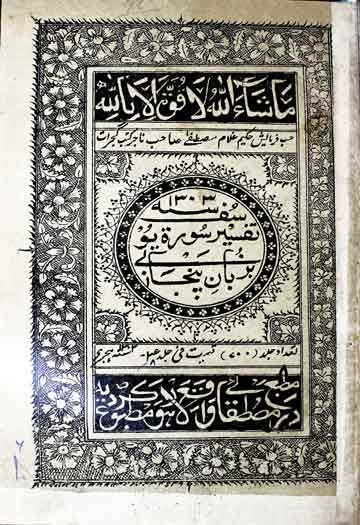 ماشاء الله لا قوة الا بالله
حسب فرمایش حکیم غلام مصطفےٰ صاحب تاجر کتب گجرات
سنہ ۱۳۰۳
تفسیر سورۃ یوسف
بزبان پنجابی
تعداد جلد (۷۰۰) قیمت فی جلد
مطبع
در مصطفائی واقع لاہور مطبوع گردید